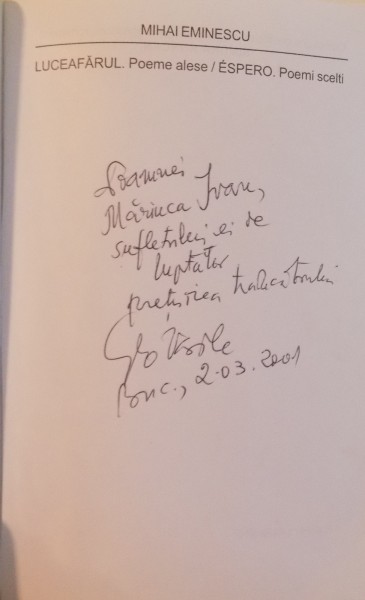 MIHAI EMINESCU
LUCEAFĂRUL. Poeme alese / ÉSPERO. Poemi scelti
Doamnei
Măriuca Ivan,
sufletului ei de
luptător
prețuirea traducătorului
Geo Vasile
Buc., 2.03.2001